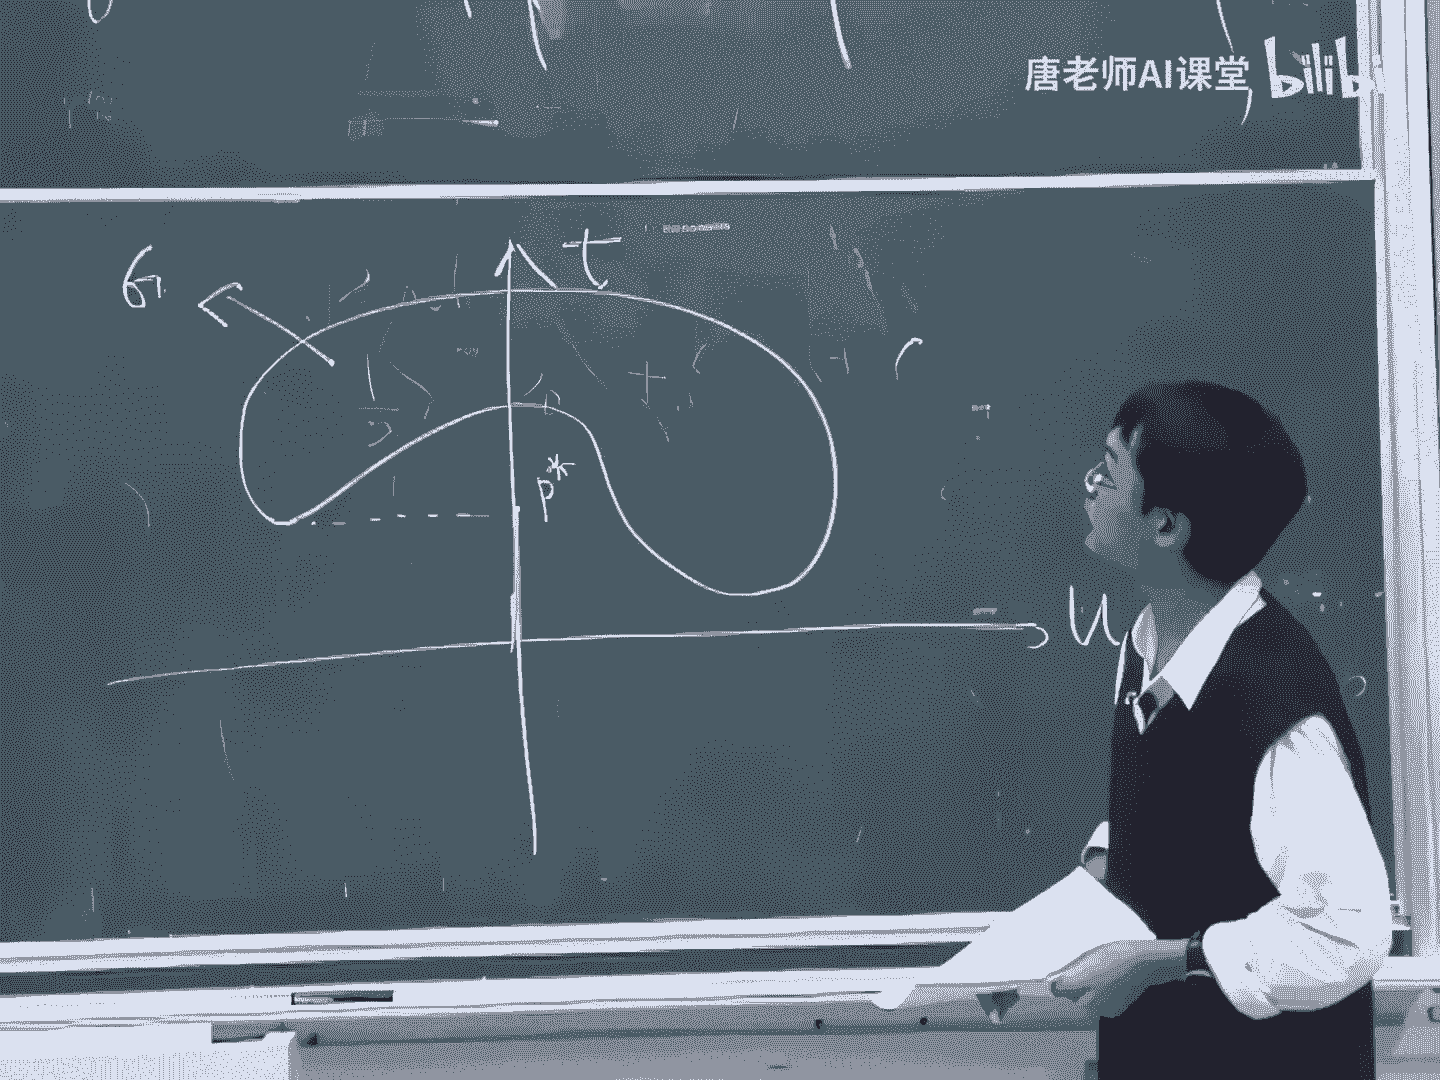 唐老师AI课堂 bilibi
t
G
p*
u